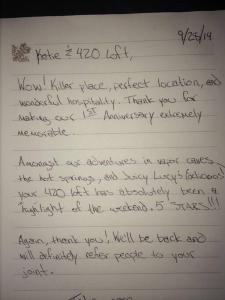 9/25/14
Katie & 420 Loft,
Wow! Killer place, perfect location, and
wonderful hospitality. Thank you for
making our 1ST Anniversary extremely
memorable.
Amongst our adventures in vapor caves,
the hot springs, and Juicy Lucy's (delicious)
your 420 loft has absolutely been a
highlight of the weekend. 5 STARS!!!
Again, thank you! We'll be back and
will definitely refer people to your
joint.